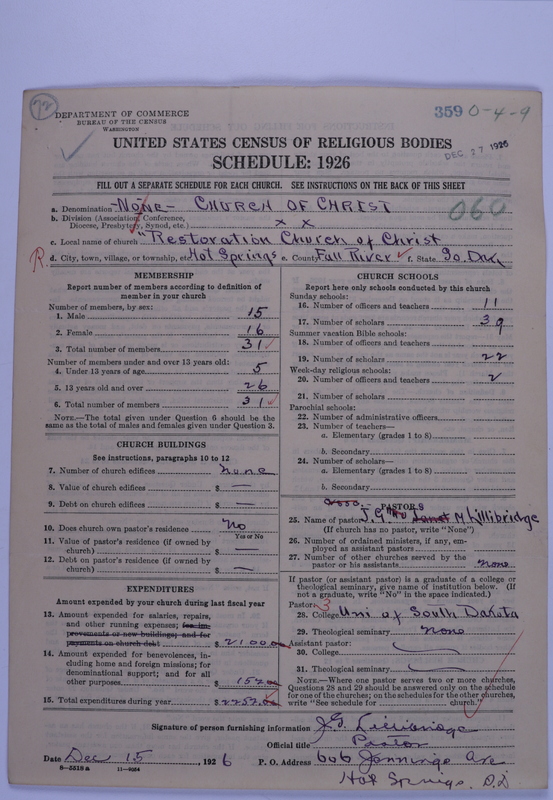 72
DEPARTMENT OF COMMERCE
BUREAU OF THE CENSUS
WASHINGTON
359 0-4-9
UNITED STATES CENSUS OF RELIGIOUS BODIES
DEC 27 1926
SCHEDULE: 1926
FILL OUT A SEPARATE SCHEDULE FOR EACH CHURCH. SEE INSTRUCTIONS ON THE BACK OF THIS SHEET
a. Denomination None - CHURCH OF CHRIST
060
b. Division (Association, Conference,
Diocese, Presbytery, Synod, etc.) x x
c. Local name of church "Restoration Church of Christ
R
d. City, town, village, or township, etc. Hot Springs e. County Fall River f. State So. Dak
MEMBERSHIP
Report number of members according to definition of
member in your church
Number of members, by sex:
1. Male 15
2. Female 16
3. Total number of members 31
Number of members under and over 13 years old:
4. Under 13 years of age 5
5. 13 years old and over 26
6. Total number of members 31
NOTE.—The total given under Question 6 should be the
same as the total of males and females given under Question 3.
CHURCH BUILDINGS
See instructions, paragraphs 10 to 12
7. Number of church edifices none
8. Value of church edifices $ —
9. Debt on church edifices $ —
10. Does church own pastor's residence No
Yes or No
11. Value of pastor's residence (if owned by
church) $ —
12. Debt on pastor's residence (if owned by
church) $ —
EXPENDITURES
Amount expended by your church during last fiscal year
13. Amount expended for salaries, repairs,
and other running expenses; for im-
provements or new buildings; and for
payments on church debt $ 2100
14. Amount expended for benevolences, in-
cluding home and foreign missions; for
denominational support; and for all
other purposes $ 157
15. Total expenditures during year $ 2257
CHURCH SCHOOLS
Report here only schools conducted by this church
Sunday schools:
16. Number of officers and teachers 11
17. Number of scholars 39
Summer vacation Bible schools:
18. Number of officers and teachers
19. Number of scholars 22
Week-day religious schools:
20. Number of officers and teachers 2
21. Number of scholars
Parochial schools:
22. Number of administrative officers
23. Number of teachers—
a. Elementary (grades 1 to 8)
b. Secondary
24. Number of scholars—
a. Elementary (grades 1 to 8)
b. Secondary
PASTORS
25. Name of pastor J. G. M Lillibridge
(If church has no pastor, write "None")
26. Number of ordained ministers, if any, em-
ployed as assistant pastors
27. Number of other churches served by the
pastor or his assistants none
If pastor (or assistant pastor) is a graduate of a college or
theological seminary, give name of institution below. (If
not a graduate, write "No" in the space indicated.)
Pastor: 3
28. College Uni of South Dakota
29. Theological seminary none
Assistant pastor:
30. College
31. Theological seminary
NOTE.—Where one pastor serves two or more churches,
Questions 28 and 29 should be answered only on the schedule
for one of the churches; on the schedules for the other churches,
write "See schedule for church."
Signature of person furnishing information J. G. Lillibridge
Official title Pastor
Date Dec 15, 1926 P. O. Address 606 Jennings Ave
8—5518 a
Hot Springs, S.D